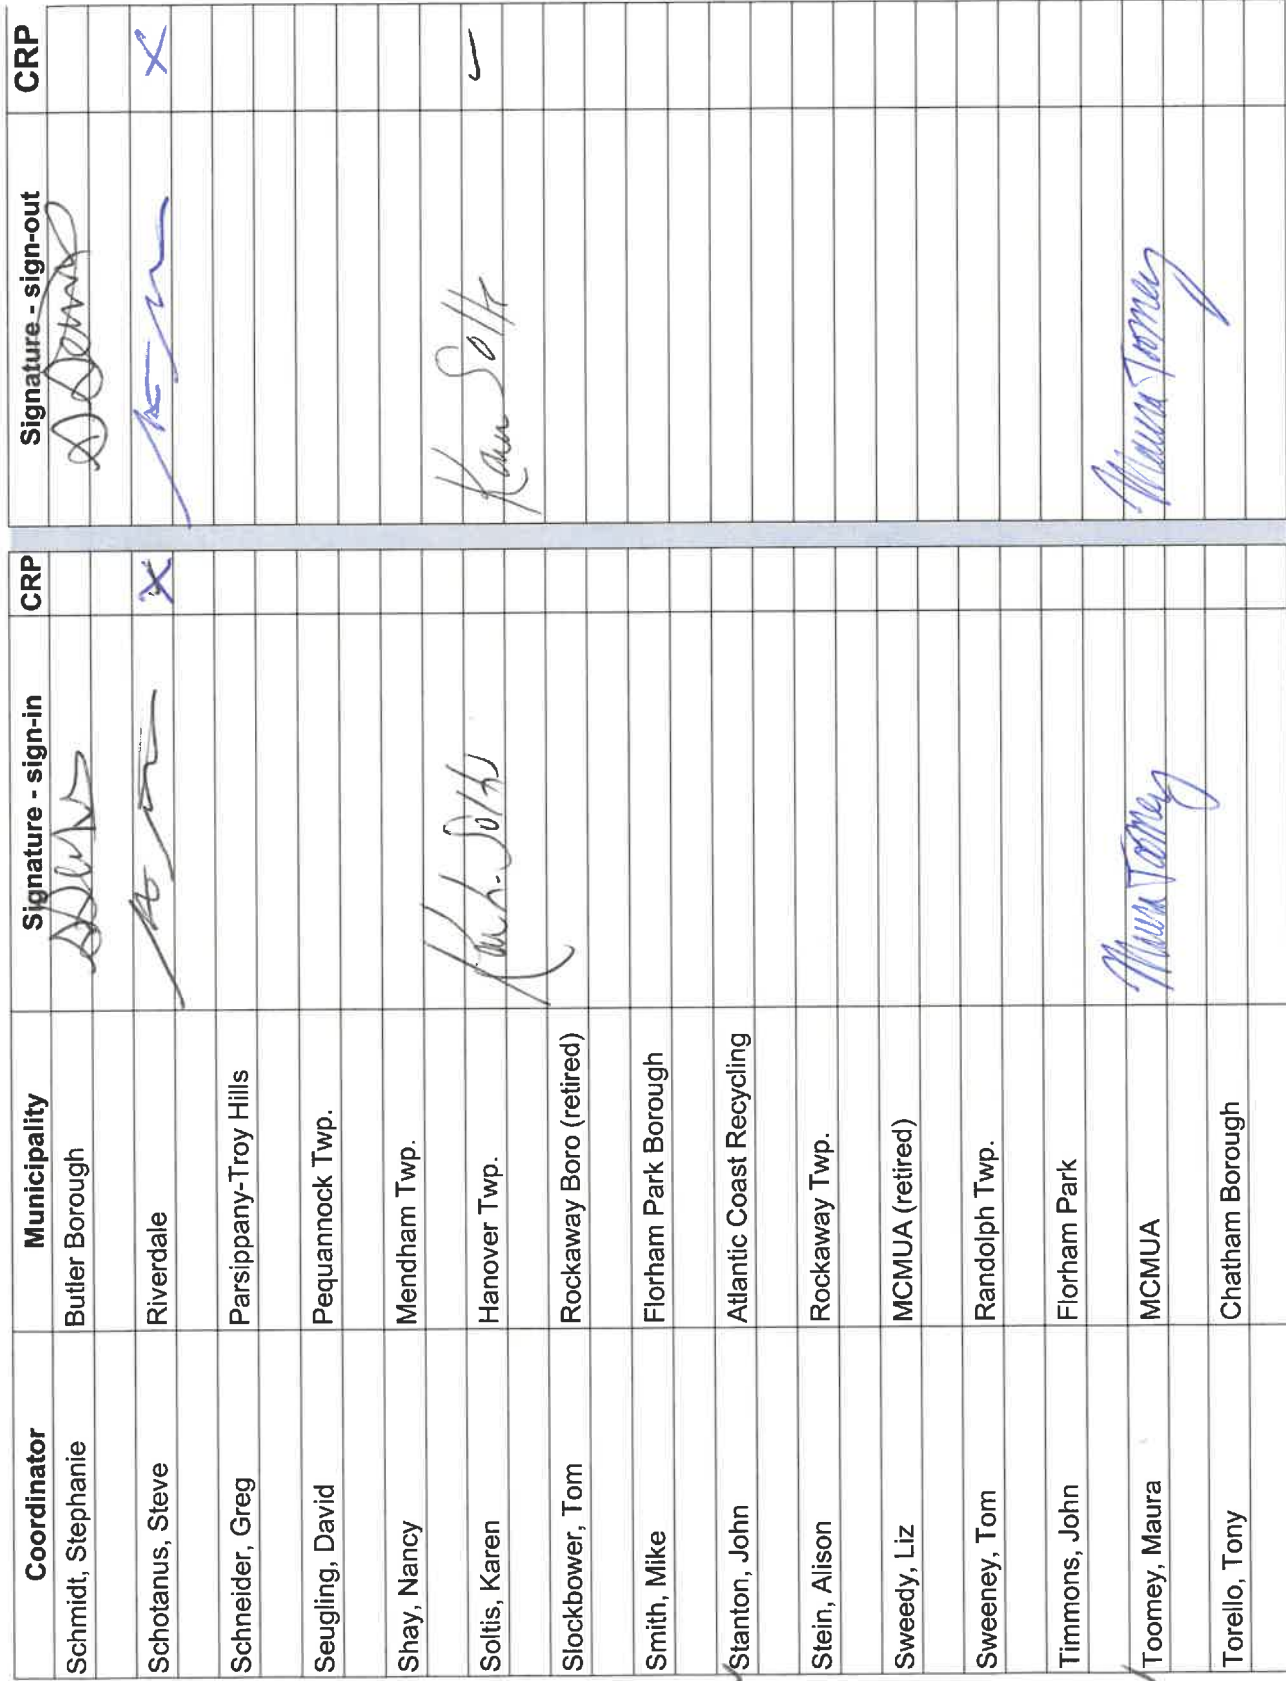 Coordinator Municipality Signature - sign-in CRP Signature - sign-out CRP
Schmidt, Stephanie Butler Borough
Schotanus, Steve Riverdale X X
Schneider, Greg Parsippany-Troy Hills
Seugling, David Pequannock Twp.
Shay, Nancy Mendham Twp.
Soltis, Karen Hanover Twp. Karen Soltis
Slockbower, Tom Rockaway Boro (retired)
Smith, Mike Florham Park Borough
Stanton, John Atlantic Coast Recycling
Stein, Alison Rockaway Twp.
Sweedy, Liz MCMUA (retired)
Sweeney, Tom Randolph Twp.
Timmons, John Florham Park
Toomey, Maura MCMUA Maura Toomey Maura Toomey
Torello, Tony Chatham Borough